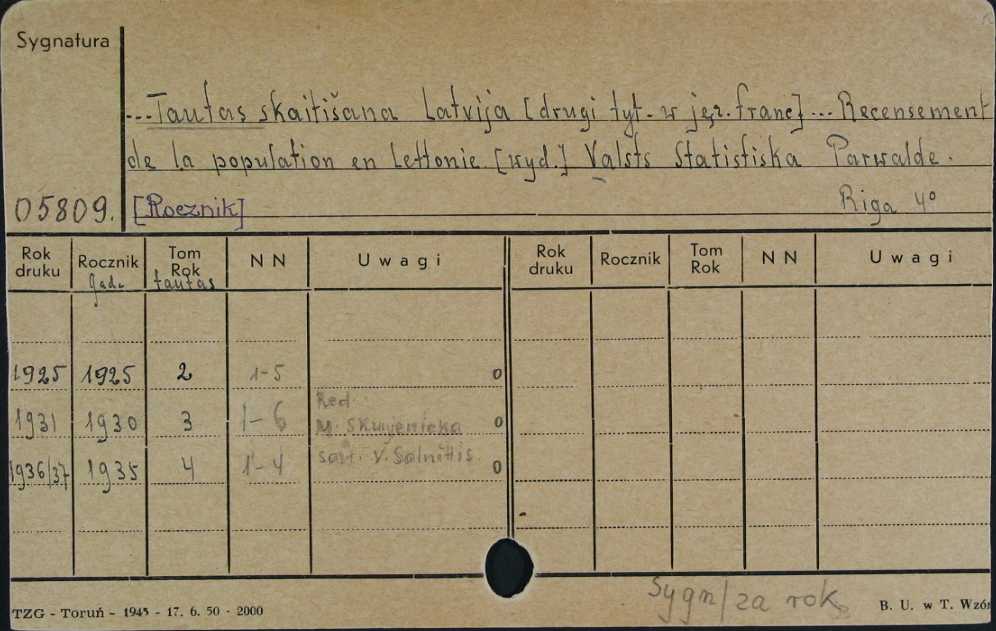 Sygnatura
...Tautas skaitišana Latvija [drugi tyt. w jęz. franc] ... Recensement
de la population en Lettonie. [wyd.] Valsts Statistiska Parwalde.
05809. [Rocznik] Riga 4º
Rok druku Rocznik Tom Rok NN Uwagi Rok druku Rocznik Tom Rok NN Uwagi
gada tautas
1925 1925 2 1-5 0
1931 1930 3 1-6 Red. M. Skujenieka 0
1936/37 1935 4 1-4 V. Salnittis 0
Sygn/za rok
TZG - Toruń - 1945 - 17. 6. 50 - 2000 B. U. w T. Wzór